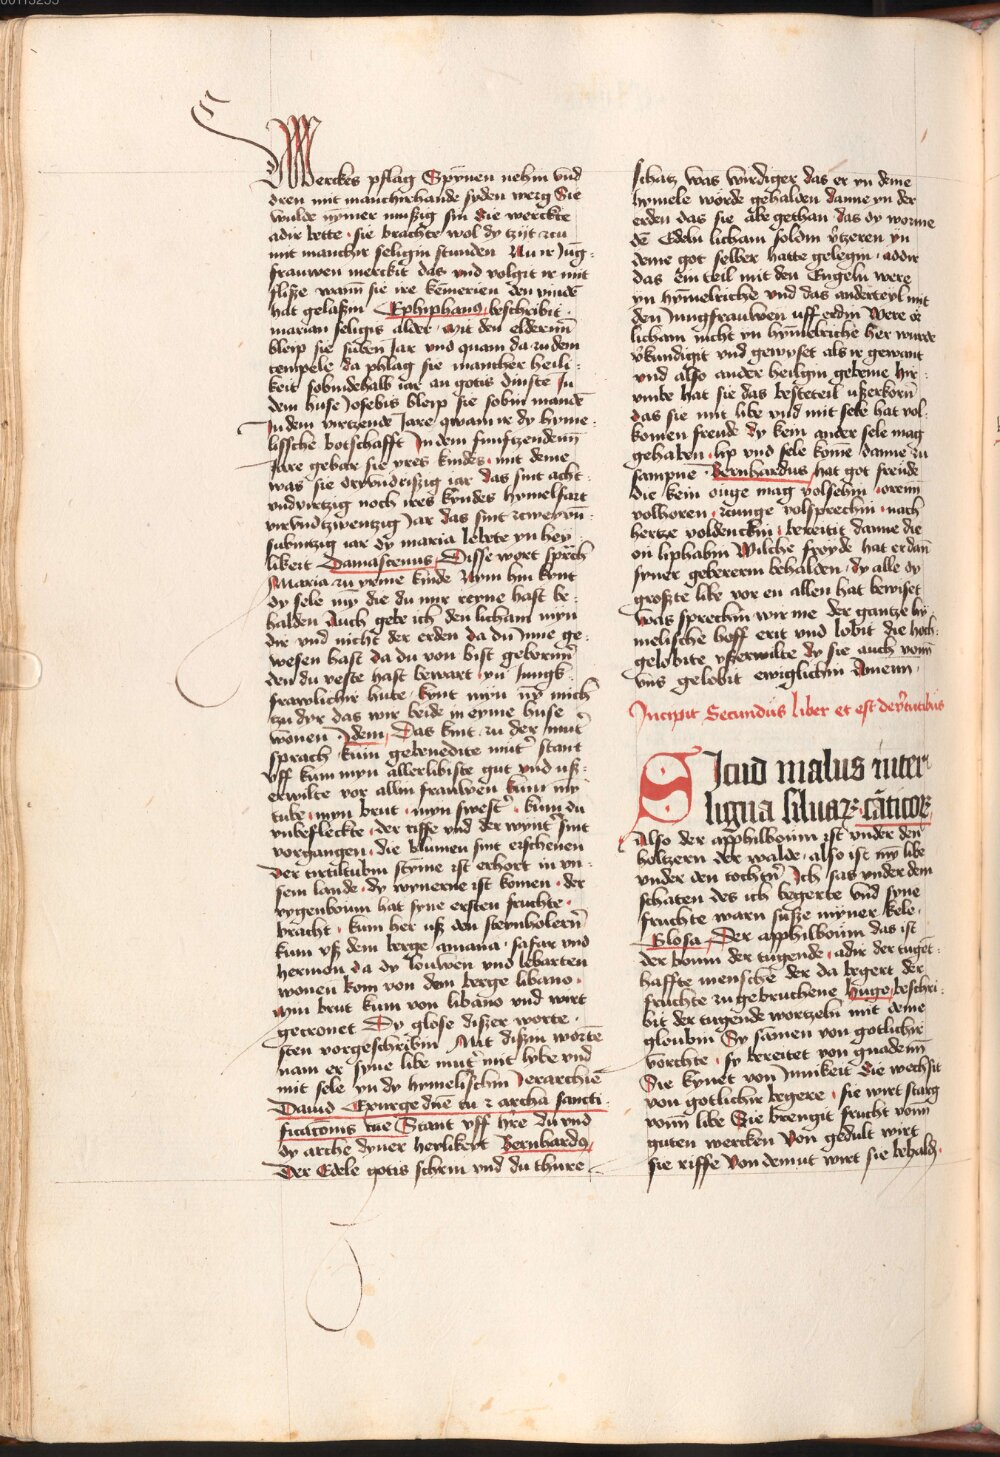 Werckes pflag Spynen nehin vnd
dren mit manchirhande syden werg Sie
wulde nymer mußig sin Sie werckte
adir bette · sie brachte wol dy tzijt zcu
mit manchir seligin stunden Nu ir Jūg-
frauwen merckit das vnd volgit ir mit
fliße wann sie ire kemerien den vinde
hat gelaßin Ephiphanꝰ beschribit ·
marian seligis alder · Mit den elderin̄
bleip sie siben Jar vnd quam da zu dem
tempele da phlag sie mancher heili-
keit sobindehalb iar an gotis dinste Ju
dem huse Josebis bleip sie sobin mande
In dem virtzende Jare qwam ir dy hyme-
lissche botschafft In dem funfftzenden̄
Jare gebar sie yres kindes · mit deme
was sie drivndrißig iar das sint acht-
vndvirtzig noch ires kyndes hymelfart
virvndtzwentzig Jar das sint zcweyvn̄-
subintzig iar dy maria lebete yn hey-
likeit Damascenus Disse wort sprach
Maria zu yreme kinde Nym hin kynt
dy sele my die du mir reyne hast be-
halden Auch gebe ich den licham myn
dir vnd nicht der erden da du inne ge-
wesen hast da du von bist geborin̄
den du veste hast bewart yn Jungk-
frawlichir hute · kynt myn ny mich
tzu dyr das wir beide in eyme huse
wonen · Idem Das kint zu der mut̄
sprach kum gebenedite mut̄ stant
vff kum myn allerlibiste gut vnd uß-
erwilte vor allin frauwen kum my
tube · myn brut · myn swest̄ · kum du
vnbefleckte · der riffe vnd der wynt̄ sint
vorgangen · die blumen sint erschenen
Der tirtiltubin stÿme ist erhort in vn-
sem lande · dy wynerne ist komen · der
vygenboum hat syne ersten fruchte ·
bracht · kum her uß den steynholern̄
kum vß dem berge amana · safar vnd
hermon da dy louwen vnd lebarten
wonen kom von dem berge libano ·
Myn brut kum von libano vnd wirt
gecronet Dy glose dißer worte ·
sten vorgeschribin Mit dißin worte
nam er syne libe mut̄ mit lybe vnd
mit sele yn dy hymelischin Jerarchie
Dauid Exurge dn̄e tu ⁊ archa sancti-
ficacōnis tue Stant vff hre du vnd
dy arche dyner heylikeit Bernhardꝰ
Der Edele gotis schrin vnd du thure
schatz was wirdiger das er yn deme
hymele worde gehalden danne yn der
erden das sie abe gethan das dy worme
dē Edeln licham soldin v̄tzeren yn
deme got selber hatte gelegin · addir
das ein teil mit den Engeln were
yn hymelriche vnd das anderteyl mit
den Jungfrauwen uff erdin Were d̄
licham nicht yn hȳmelriche her wurde
v̄kundigit vnd gewyset als ir gewant
vnd also ander heiligin gebeine hir-
vmbe hat sie das besteteil ußerkorn̄
das sie mit libe vnd mit sele hat vol-
komen freude dy kein ander sele mag
gehaben · lip vnd sele kome danne zu
sampne · Bernhardus hat got freude
die kein ouge mag volsehin · orenn
volhoren · zcunge volsprechin · nach
hertze voldenckin · bereitit danne die
on liphabin Wilche froyde hat er dan̄
syner gebererin behalden · dy alle dy
großte libe vor en allen hat bewiset
was sprechin wir me der gantze hy-
melische hoff erit vnd lobit die hoch-
gelobite vßerwilte dy sie auch von̄
vns gelobit ewiglichin Amenn ·
Incipit Secundus liber et est de v̄tutibus
SIcud malus inter
ligna siluaꝝ · cāticoꝝ
Also der apphilboum ist vnder den
holtzern der walde · also ist my libe
vnder den tochtn̄ Ich sas vnder dem
schaten des ich begerte vnd syne
fruchte warn suße myner kele ·
Glosa Der apphilboum das ist
der boum der tugende · adir der tuget-
haffte mensche der da begert der
fruchte zu gebruchene huge beschri-
bit der tugende wortzeln mit deme
gloubin Sy samen von gotlichir
vorchte · sy bereitet von gnaden̄
Sie kynet von Innikeit Sie wechsit
von gotlichir begere · sie wirt starg
von̄ libe Sie brengit frucht von̄
guten wercken Von gedult wirt
sie riffe Von demut wirt sie behald̄ ·